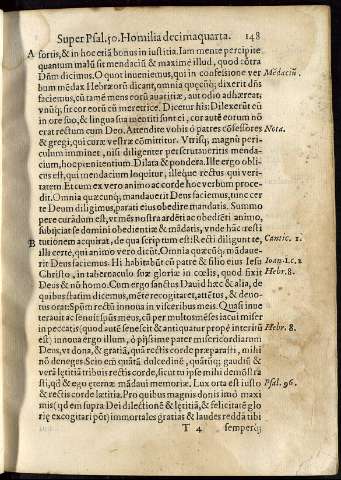 Super Psal. 50. Homilia decimaquarta. 148
A fortis, & in hoc etiā bonus in iustitia. Iam mente percipite
quantum malū sit mendaciū & maxime illud, quod cōtra
Dn̄m dicimus. O quot inueniemus, qui in confessione ver
Mēdaciū.
bum mēdax Hebræorū dicant, omnia quęcūq; dixerit dn̄s
faciemus, cū tamē mens eorū auaritiæ, aut odio adhæreat;
vnūq; sit cor eorū cū meretrice. Dicetur his: Dilexerūt eū
in ore suo, & lingua sua mentiti sunt ei, cor autē eorum nō
erat rectum cum Deo. Attendite vobis ô patres cōfessores
Nota.
& gregi, qui curæ vestræ cōmittitur. Vtrisq; magnū peri-
culum imminet, nisi diligenter perscrutaueritis menda-
cium, hoc pœnitentium. Dilata & pondera. Ille ergo obli-
cus est, qui mendacium loquitur, illéque rectus qui veri-
tatem. Et cum ex vero animo ac corde hoc verbum proce-
dit. Omnia quæcunq; mandauerit Deus faciemus, tunc cer
te Deum diligimus, parati eius obedire mandatis. Summo
pere curādum est, vt mēs nostra ardēti ac obedīēti animo,
subijciatse domini obedientiæ & mādatis, vnde hāc resti
B tutionem acquirat, de qua scriptum est: Recti diligunt te,
Cantic. 1.
illi certè, qui animo vero dicūt. Omnia quæcūq; mādaue-
rit Deus faciemus. Hi habitabūt cū patre & filio eius Iesu
Ioan. I. c. 2
Christo, in tabernaculo suæ gloriæ in cœlis, quod fixit
Hebr. 8.
Deus & nō homo. Cum ergo sanctus Dauid hæc & alia, de
quibus statim dicemus, mēte recogitaret, attētus, & deuo-
tus orat: Spm̄ rectū innoua in visceribus meis. Quasi inue
terauit ac senuit suus, cū tu, cū per multos mēses iacui miser
in peccatis (quod autē senescit & antiquatur propè interitū
Hebr. 8.
est) innoua ergo illum, ô pijssime pater misericordiarum
Deus, vt dona, & gratiā, quā rectis corde præparasti, mihi
nō deneges. Scio em̄ quātā dulcedinē, quātūq; gaudiū &
verā lętitiā tribuis rectis corde, sicut tu ipse mihi demōstra
sti, qđ & ego æternæ mādaui memoriæ. Lux orta est iusto
Psal. 96.
& rectis corde lætitia. Pro quibus magnis donis imò maxi
mis (qđ em̄ supra Dei dilectionē & lętitiā, & felicitatē glo
rię excogitari pōt) immortales gratias & laudes reddā tibi
T 4 semperq;